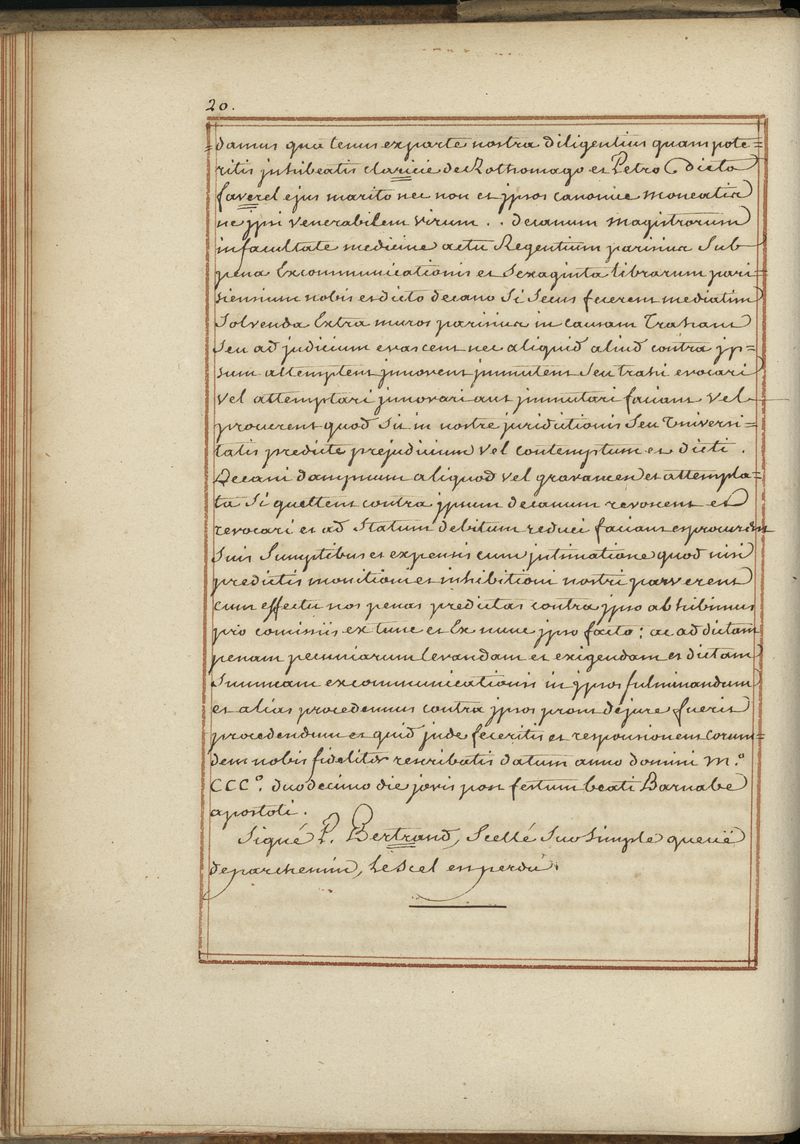 20.
damus qua tenus ex parte nostra diligentius quam pote=
ritis jnhibeatis claricie de Rothomago et Petro dicto
faverel ejus marito nec non et jpsos canonice moneatis
ne jpsi venerabilem virum . . decanum magistrorum
in facultate medicine actu Regentium parisius sub
pena Excommunicationis et sexaginta librarum pari=
siensium nobis et dicto decano si secus fecerent mediatim
solvenda Extra muros parisius in causam trahant
seu ad judicium evocent nec aliquid aliud contra jp=
sum attemptent jnnovent jmmutent seu trahi evocari
vel attemptari jnnovari aut jmmutari faciant vel
procurent quod sit in nostre juridictionis seu Universi=
tatis predicte prejudicium vel contemptum et dicti .
Decani dampnum aliquod vel gravamen et attempta=
ta si que ttent contra jpsum decanum revocent et
revocari et ad statum debitum reduci faciant et procurent
suis sumptibus et expensis cum jntimatione quod nisi
predictis monitioni et inhibitioni nostri parverent
cum effectu nos penas predictas contra jpso abhibimus
pro commiis ex tunc et Ex nunc jpso facto ; ac ad dictam
penam pecuniarum levandam et exigendam et dictam
summam excommunicationis in jpsos fulminandum
et alias procedemus contra jpsos prout de jure fuerit
procedendum et quid jnde feceritis et responsionem eorum=
dem nobis fideliter rescribatis datum anno domini m.º
CCCº. duodecimo die jovis post festum beati Barnabe
apostoli .
Signé P. Bertrand, Scellé Sur simple queuë
de parchemin, le scel en perdu.